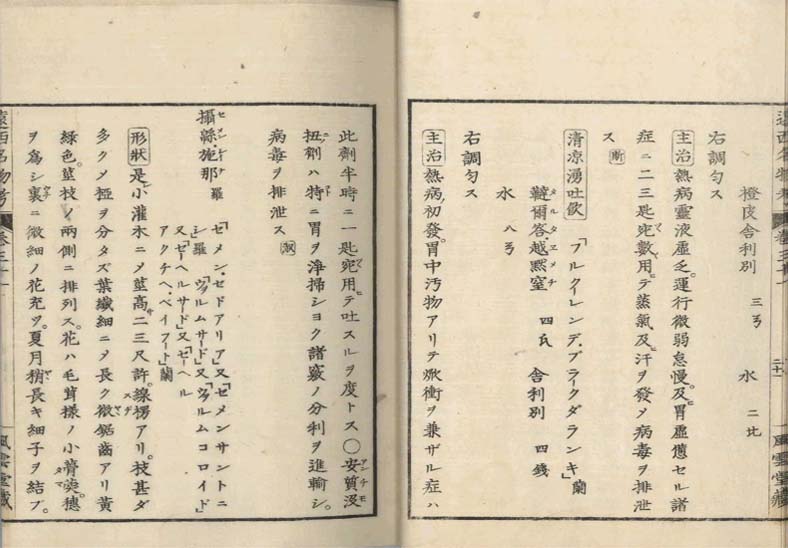 橙皮舎利別 三ヲ 水 二比
右調勻ス
主治 熱病靈液虛乏。運行微弱怠慢。及ヒ胃虛憊セル諸
症ニ二三匙宛數用テ蒸氣及ヒ汗ヲ發メ病毒ヲ排泄
ス
清凉湧吐飲 「ブルクーレンデ.ブライクダランキ」蘭
韃爾答越黙窒 四氏 舎利別 四錢
タルタエメチ
水 八ヲ
右調勻ス
主治 熱病初發。胃中汚物アリテ焮衝ヲ兼ザル症ハ
此劑半時ニ一匙宛用テ吐スルヲ度トス○安質沒
アンチモ
扭劑ハ特ニ胃ヲ淨掃シヨク諸竅ノ分利ヲ進輸シ。
病毒ヲ排泄ス
攝緜施那
セメンシナ
「セメン.セドアリア」又「セメンサントニ
羅
シ」羅 「ウヲルムサード」又「ウヲルムコロイド」
又「セーヘルサード」又「セーヘル
アクチヘ.ベイフート」蘭
形狀 是レ小灌木ニメ莖高サ二三尺許。線楞アリ。枝甚ダ
多クメ椏ヲ分タズ葉纎細ニメ長ク微鋸齒アリ黃
綠色。莖枝ノ兩側ニ排列ス。花ハ毛茸樣ノ小膏葖穗
ヲ爲シ裏ニ微細ノ花充ツ。夏月稍長キ細子ヲ結ブ。
遠西名物考
卷三十一
風雲堂藏